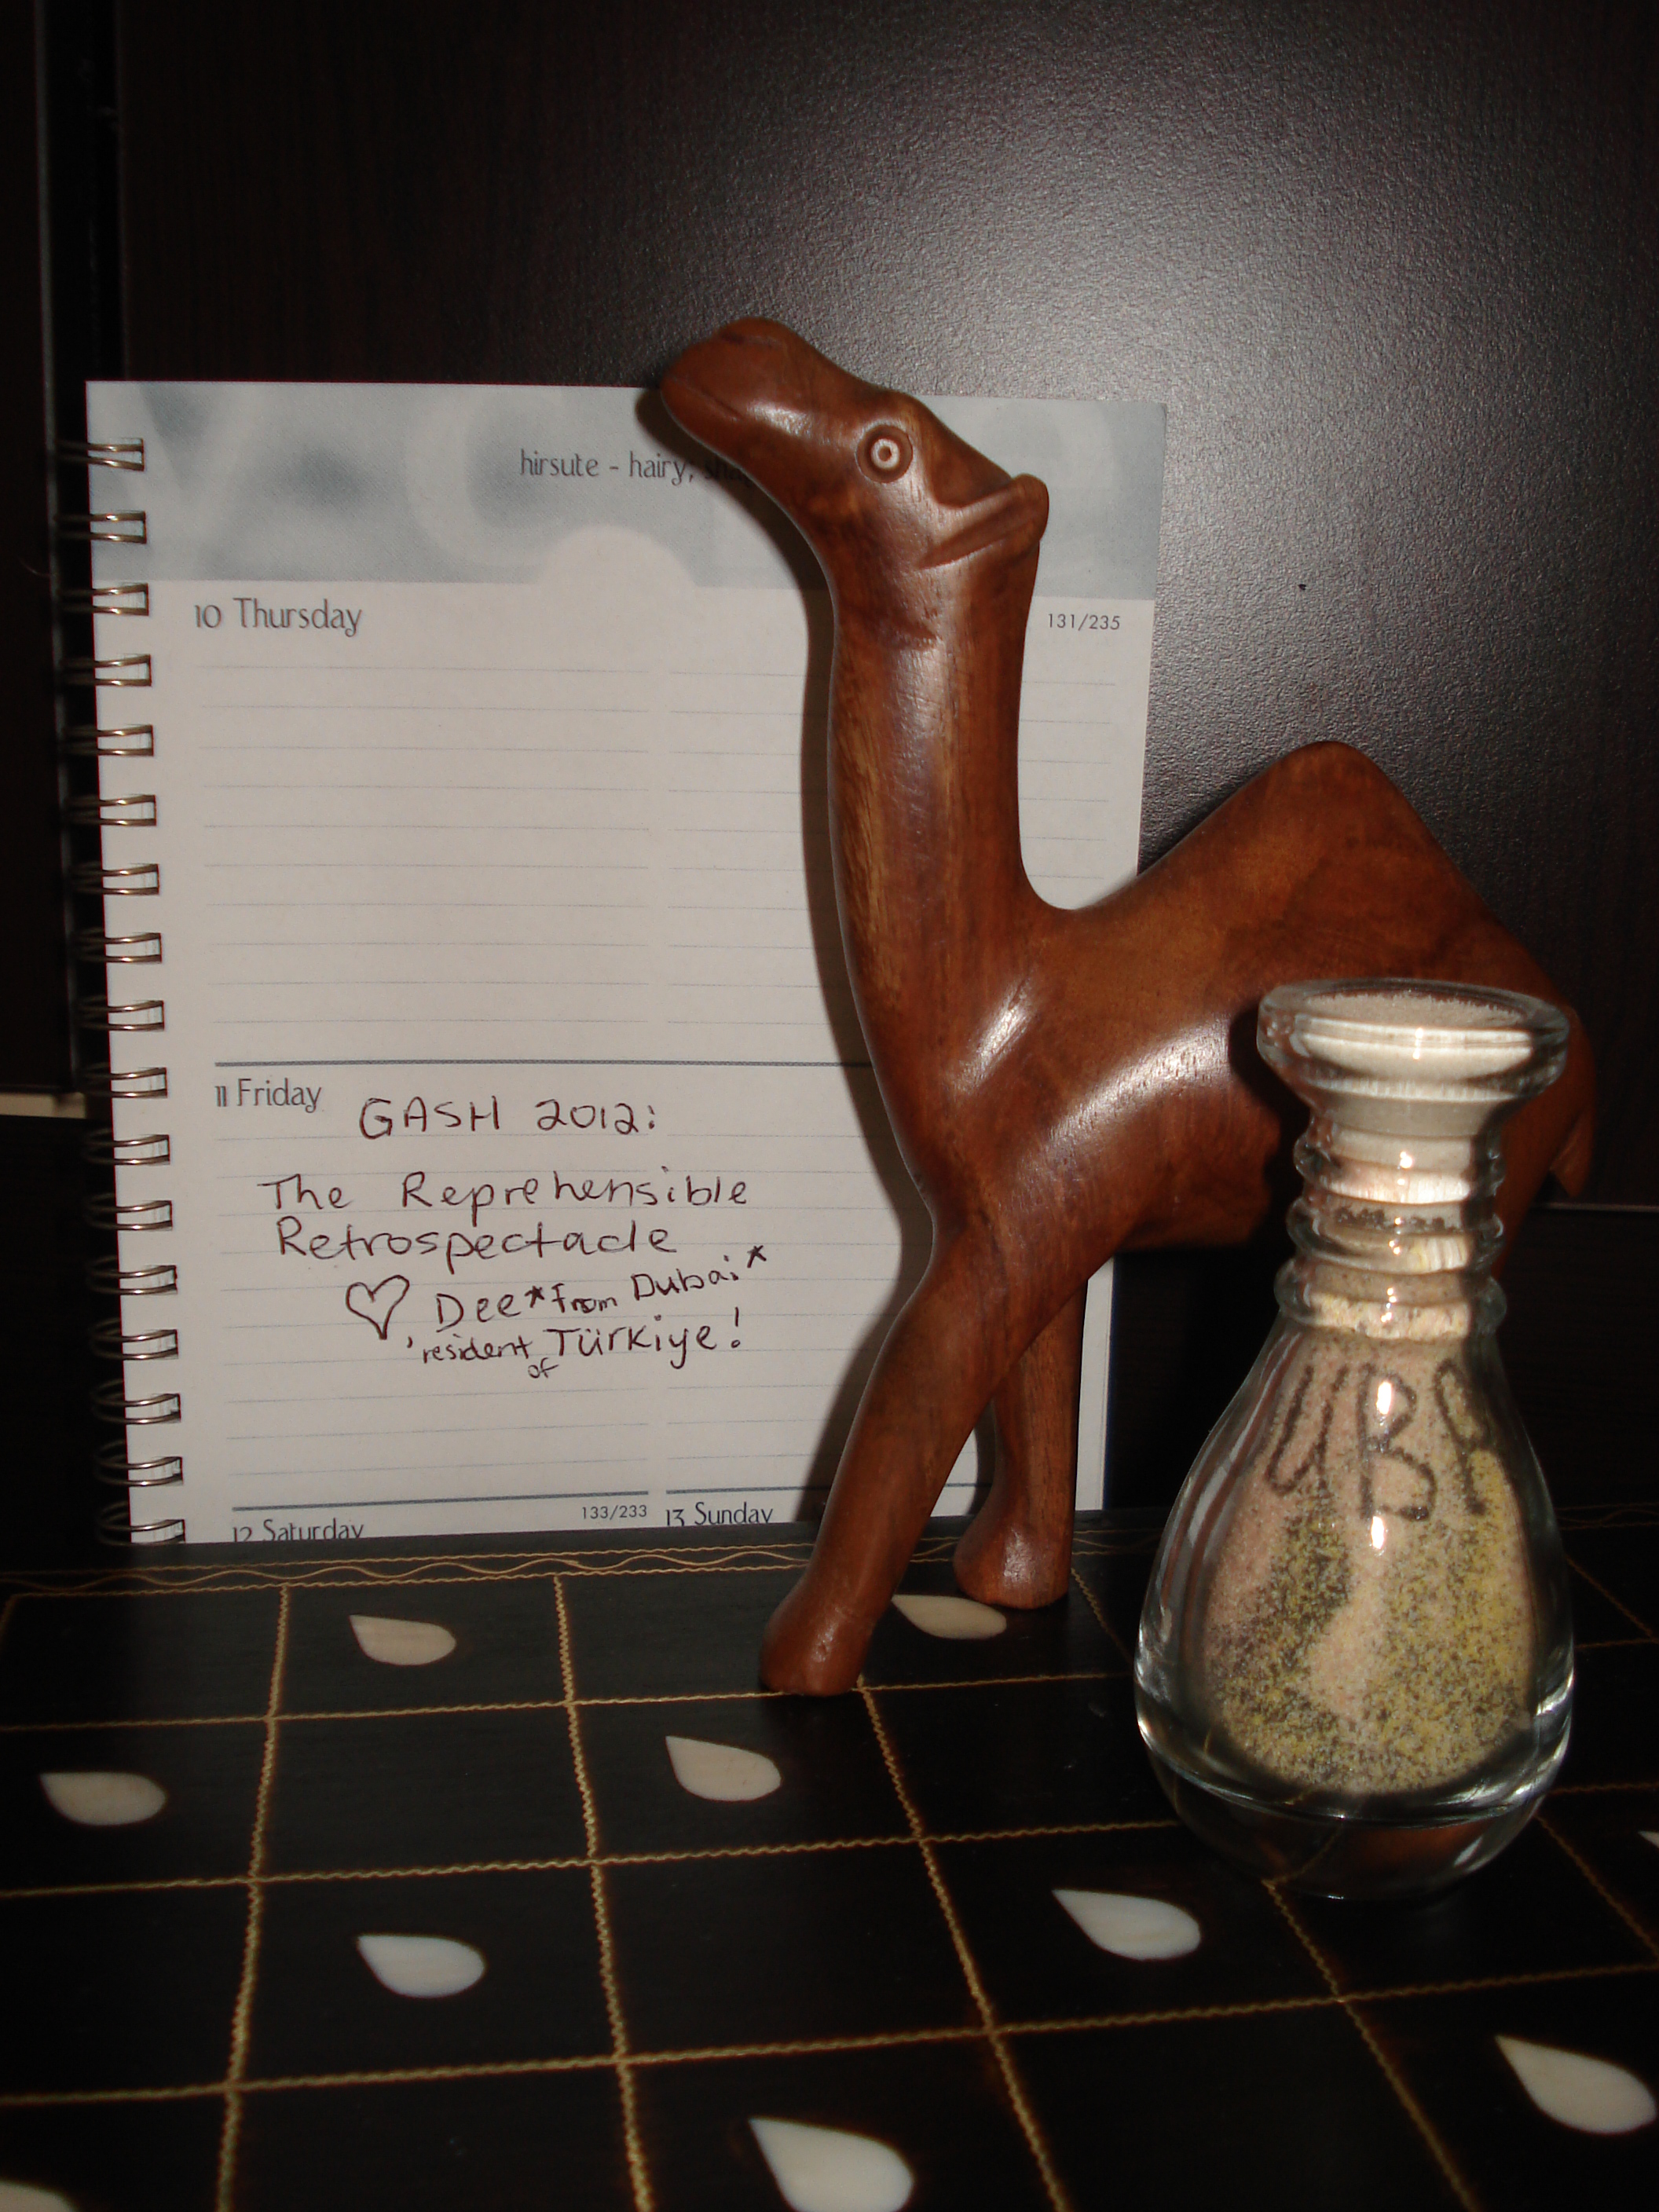 hirsute - hairy,
10 Thursday
131/235
11 Friday
GASH 2012:
The Reprehensible
Retrospectacle
♡ Dee* from Dubai*
'resident of Türkiye!
133/233
12 Saturday
13 Sunday
UBA